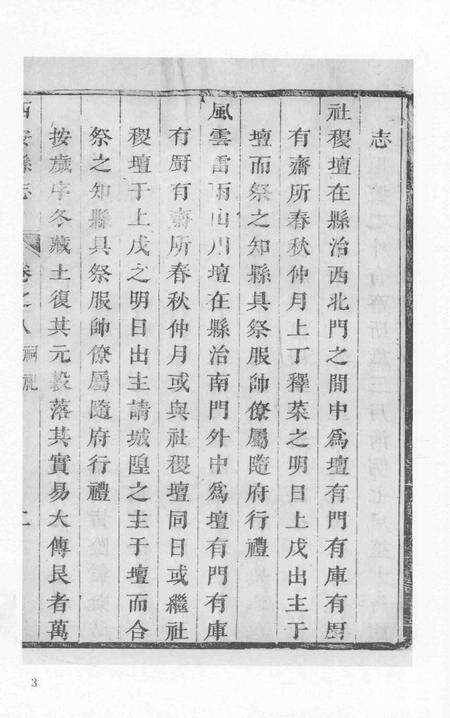 志
社稷壇在縣治西北門之間中爲壇有門有庫有厨
有齋所春秋仲月上丁釋菜之明日上戊出主于
壇而祭之知縣具祭服帥僚屬隨府行禮
風雲雷雨山川壇在縣治南門外中爲壇有門有庫
有厨有齋所春秋仲月或與社稷壇同日或繼社
稷壇于上戊之明日出主請城隍之主于壇而合
祭之知縣具祭服帥僚屬隨府行禮
按歲序冬藏土復其元穀落其實易大傳民者萬
西安縣志 卷之八 祠祀 二
3